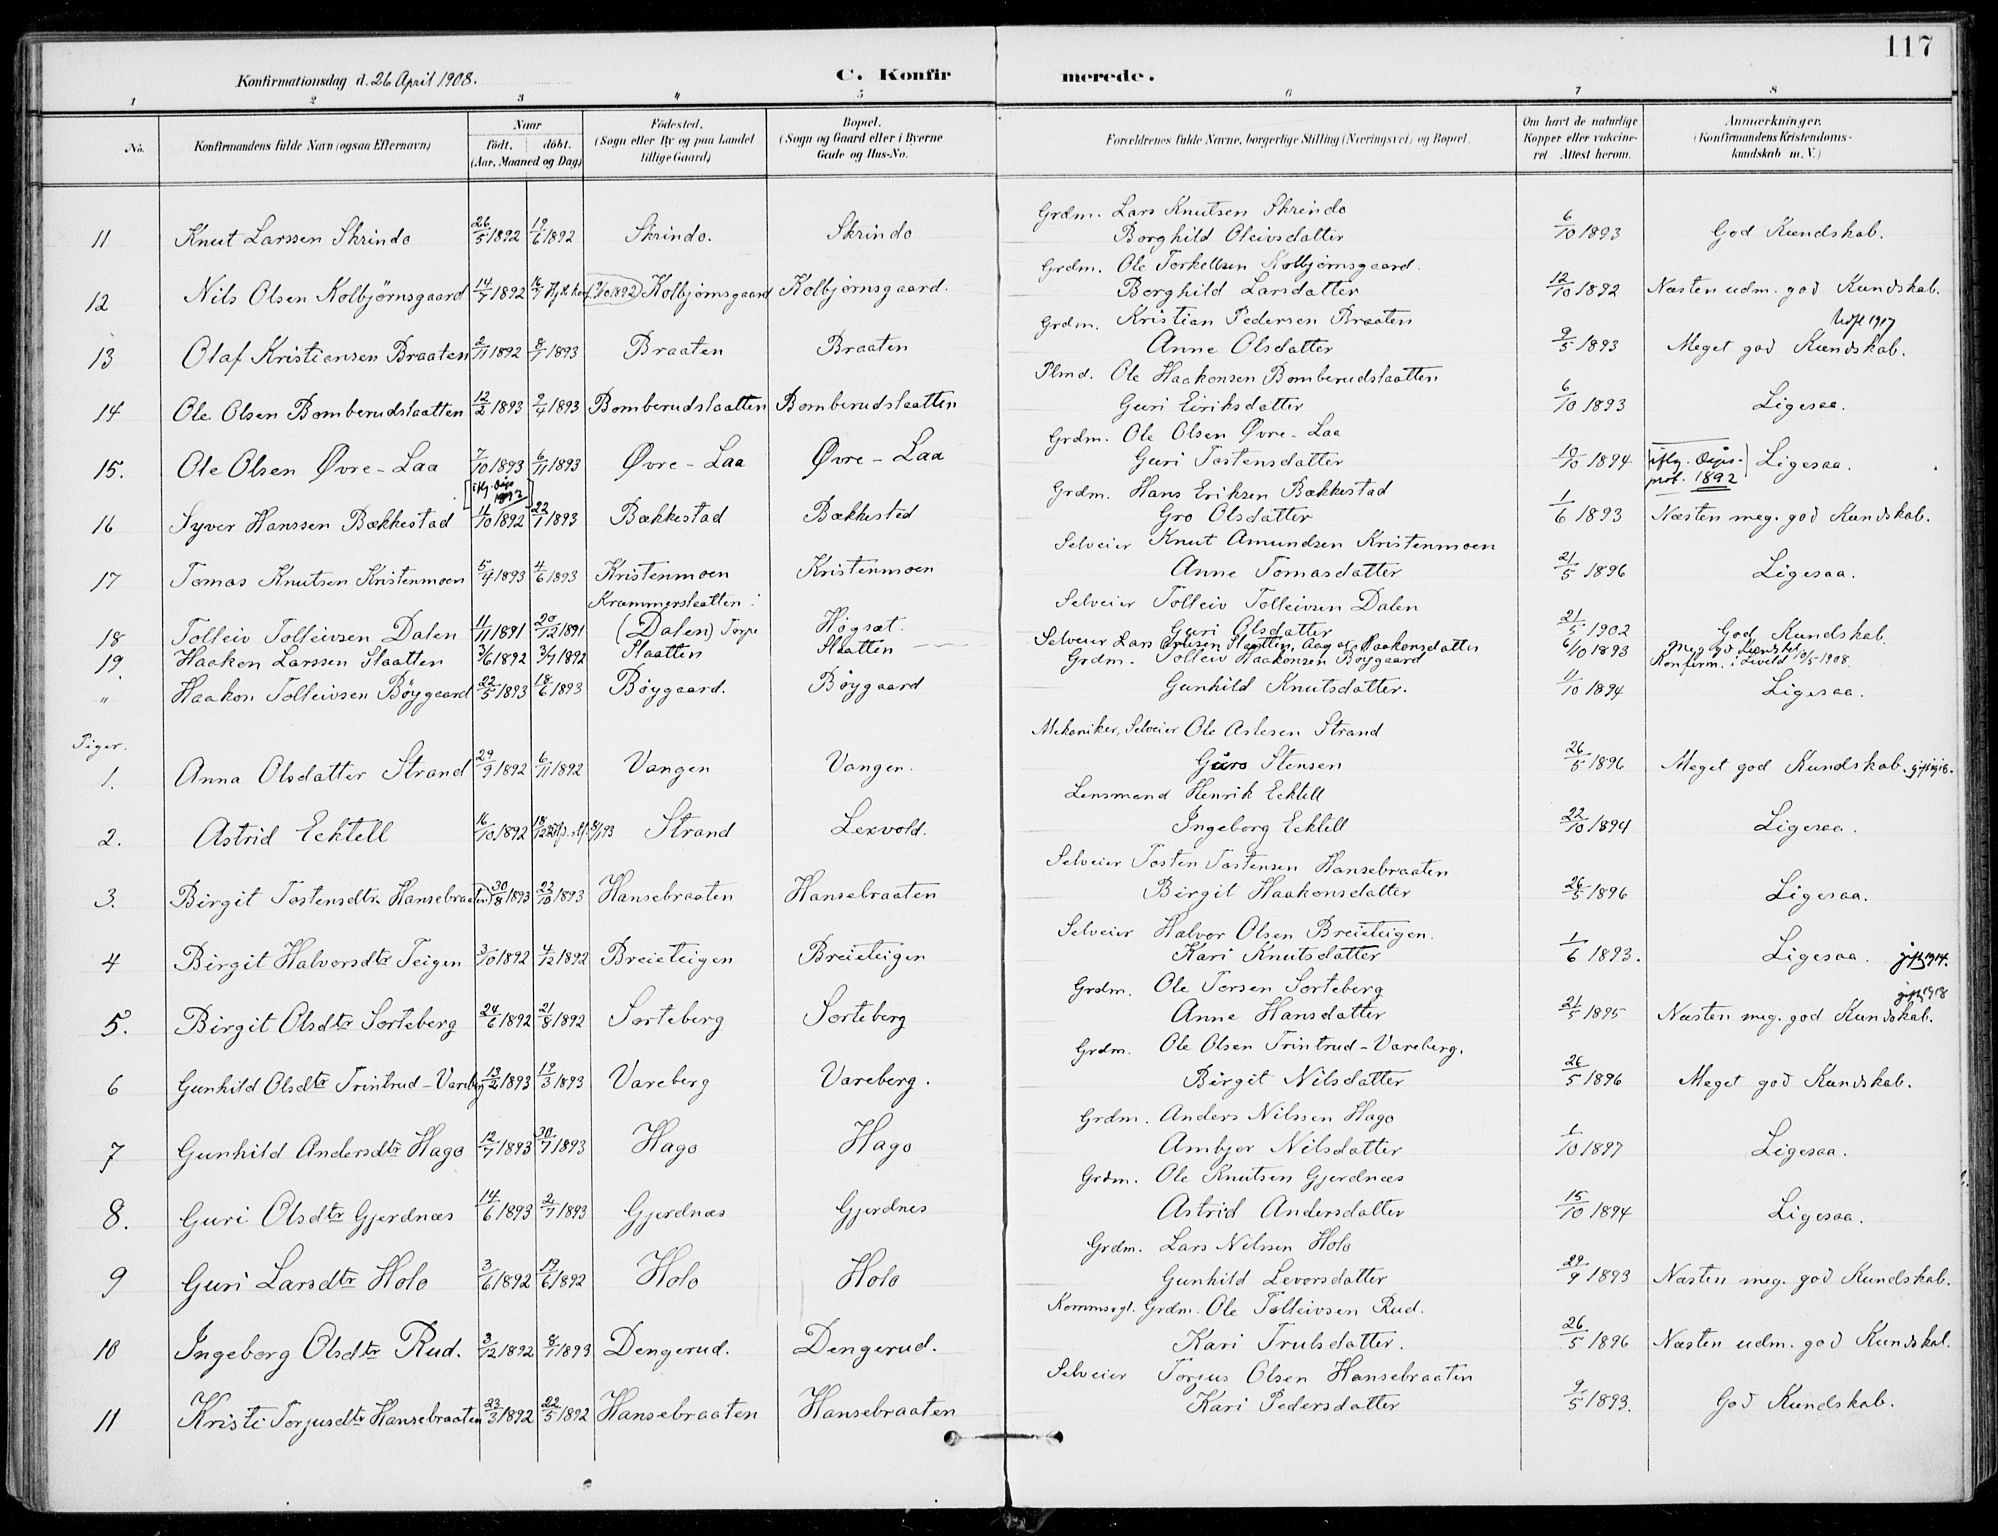 117
Konfirmationsdag d. 26 April 1908. C. Konfirmerede.
1 2 3 4 5 6 7 8
No. Konfirmandens fulde Navn (ogsaa Efternavn) Naar födt. döbt. (Aar, Maaned og Dag) Födested. (Sogn eller By og paa Landet tillige Gaard) Bopæl. (Sogn og Gaard eller i Byerne Gade og Hus-No. Forældrenes fulde Navne, borgerlige Stilling (Næringsvei) og Bopæl. Om havt de naturlige Kopper eller vakcineret Attest herom. Anmærkninger. (Konfirmandens Kristendomskundskab m. V.)
Grdm. Lars Knutsen Skrindo
11 Knut Larssen Skrindo 26/5 1892 19/6 1892 Skrindo. Skrindo Borghild Oleivsdatter 6/10 1893 God Kundskab.
Grdm. Ole Torkellsen Kolbjørnsgaard.
12 Nils Olsen Kolbjörnsgaard 14/7 1892 Kolbjørnsgaard Kolbjørnsgaard. Borghild Larsdatter 12/10 1892 Næsten udm. god Kundskab.
Grdm. Kristian Pedersen Braaten Udfl 1917
13 Olaf Kristiansen Braaten 2/11 1892 8/1 1893 Braaten Braaten Anne Olsdatter 9/5 1893 Meget god Kundskab.
Plmd. Ole Haakonsen Bomberudslaatten
14 Ole Olsen Bomberudslaatten 12/2 1893 2/4 1893 Bomberudslaatten Bomberudslaatten Guri Eiriksdatter 6/10 1893 Ligesaa.
Grdm. Ole Olsen Øvre-Laa
15. Ole Olsen Øvre-Laa 7/10 1893 6/11 1893 Øvre-Laa Øvre-Laa Guri Tostensdatter 10/10 1894 Ligesaa.
1892
Grdm. Hans Eriksen Bækkestad
16 Syver Hanssen Bækkestad 11/10 1892 22/1 1893 Bækkestad Bækkested Gro Olsdatter 1/6 1893 Næsten meg. god Kundskab.
Selveier Knut Amundsen Kristenmoen
17 Tomas Knutsen Kristenmoen 5/4 1893 4/6 1893 Kristenmoen Kristenmoen Anne Tomasdatter 21/5 1896 Ligesaa.
Krammerslaatten Selveier Tolleiv Tolleivsen Dalen
18 Tolleiv Tolleivsen Dalen 11/11 1891 20/12 1891 (Dalen) Torpe Høgsæt. Guri Olsdatter 21/5 1902 God Kundskab.
19. Haakon Larssen Slaatten 3/6 1892 3/7 1892 Slaatten Slaatten Selveier Lars Slaatten, Aagot Haakonsdatter 6/10 1893 Meg. god Kundskab
Grdm. Tolleiv Haakonsen Bøygaard Konfirm. i 10/5 1908.
" Haakon Tolleivsen Böygaard 22/5 1893 18/6 1893 Bøygaard. Bøygaard Gunhild Knutsdatter. 11/10 1894 Ligesaa.
Piger. Mekaniker, Selveier Ole Aslesen Strand
1. Anna Olsdatter Strand 29/9 1892 6/11 1892 Vangen Vangen. Guro Stensen 26/5 1896 Meget god Kundskab.
Lensmand Henrik Ecktell
2. Astrid Ecktell 16/10 1892 Strand Lexvold. Ingeborg Ecktell 22/10 1894 Ligesaa.
Selveier Tosten Tostensen Hansebraaten
3. Birgit Tostensdtr. Hansebraaten 30/8 1893 22/10 1893 Hansebraaten Hansebraaten Birgit Haakonsdatter 26/5 1896 Ligesaa.
Selveier Halvor Olsen Breieteigen.
4 Birgit Halvorsdtr Teigen 3/10 1892 4/12 1892 Breieteigen Breieteigen Kari Knutsdatter 1/6 1893. Ligesaa. gift 1914.
Grdm. Ole Torsen Sorteberg gift 1918
5. Birgit Olsdtr Sorteberg 24/6 1892 21/8 1892 Sorteberg Sorteberg Anne Hansdatter 21/5 1895 Næsten meg. god Kundskab.
Grdm. Ole Olsen Trintrud-Vareberg.
6 Gunhild Olsdtr Trintrud-Vareberg 13/2 1893 19/3 1893 Vareberg Vareberg. Birgit Nilsdatter 26/5 1896 Meget god Kundskab.
Grdm. Anders Nilssen Hago
7 Gunhild Andersdtr Hago 12/7 1893 30/7 1893 Hago Hago Ambjør Nilsdatter 1/10 1897 Ligesaa.
Grdm. Ole Knutsen Gjerdnæs
8. Guri Olsdtr Gjerdnæs 14/6 1893 2/7 1893 Gjerdnæs Gjerdnes Astrid Andersdatter 15/10 1894 Ligesaa.
Grdm. Lars Nilssen Holo
9 Guri Larsdtr Holo 3/6 1892 19/6 1892 Holo Holo Gunhild Levorsdatter 29/9 1893 Næsten meg. god Kundskab.
Grdm. Ole Tolleivsen Rud.
10 Ingeborg Olsdtr Rud. 3/12 1892 8/1 1893 Dengerud. Dengerud. Kari Trulsdatter. 26/5 1896 Næsten udm. god Kundskab.
Selveier Torjus Olsen Hansebraaten
11 Kristi Torjusdtr Hansebraaten 23/3 1892 22/5 1892 Hansebraaten Hansebraaten Kari Pedersdatter 9/5 1893. God Kundskab.